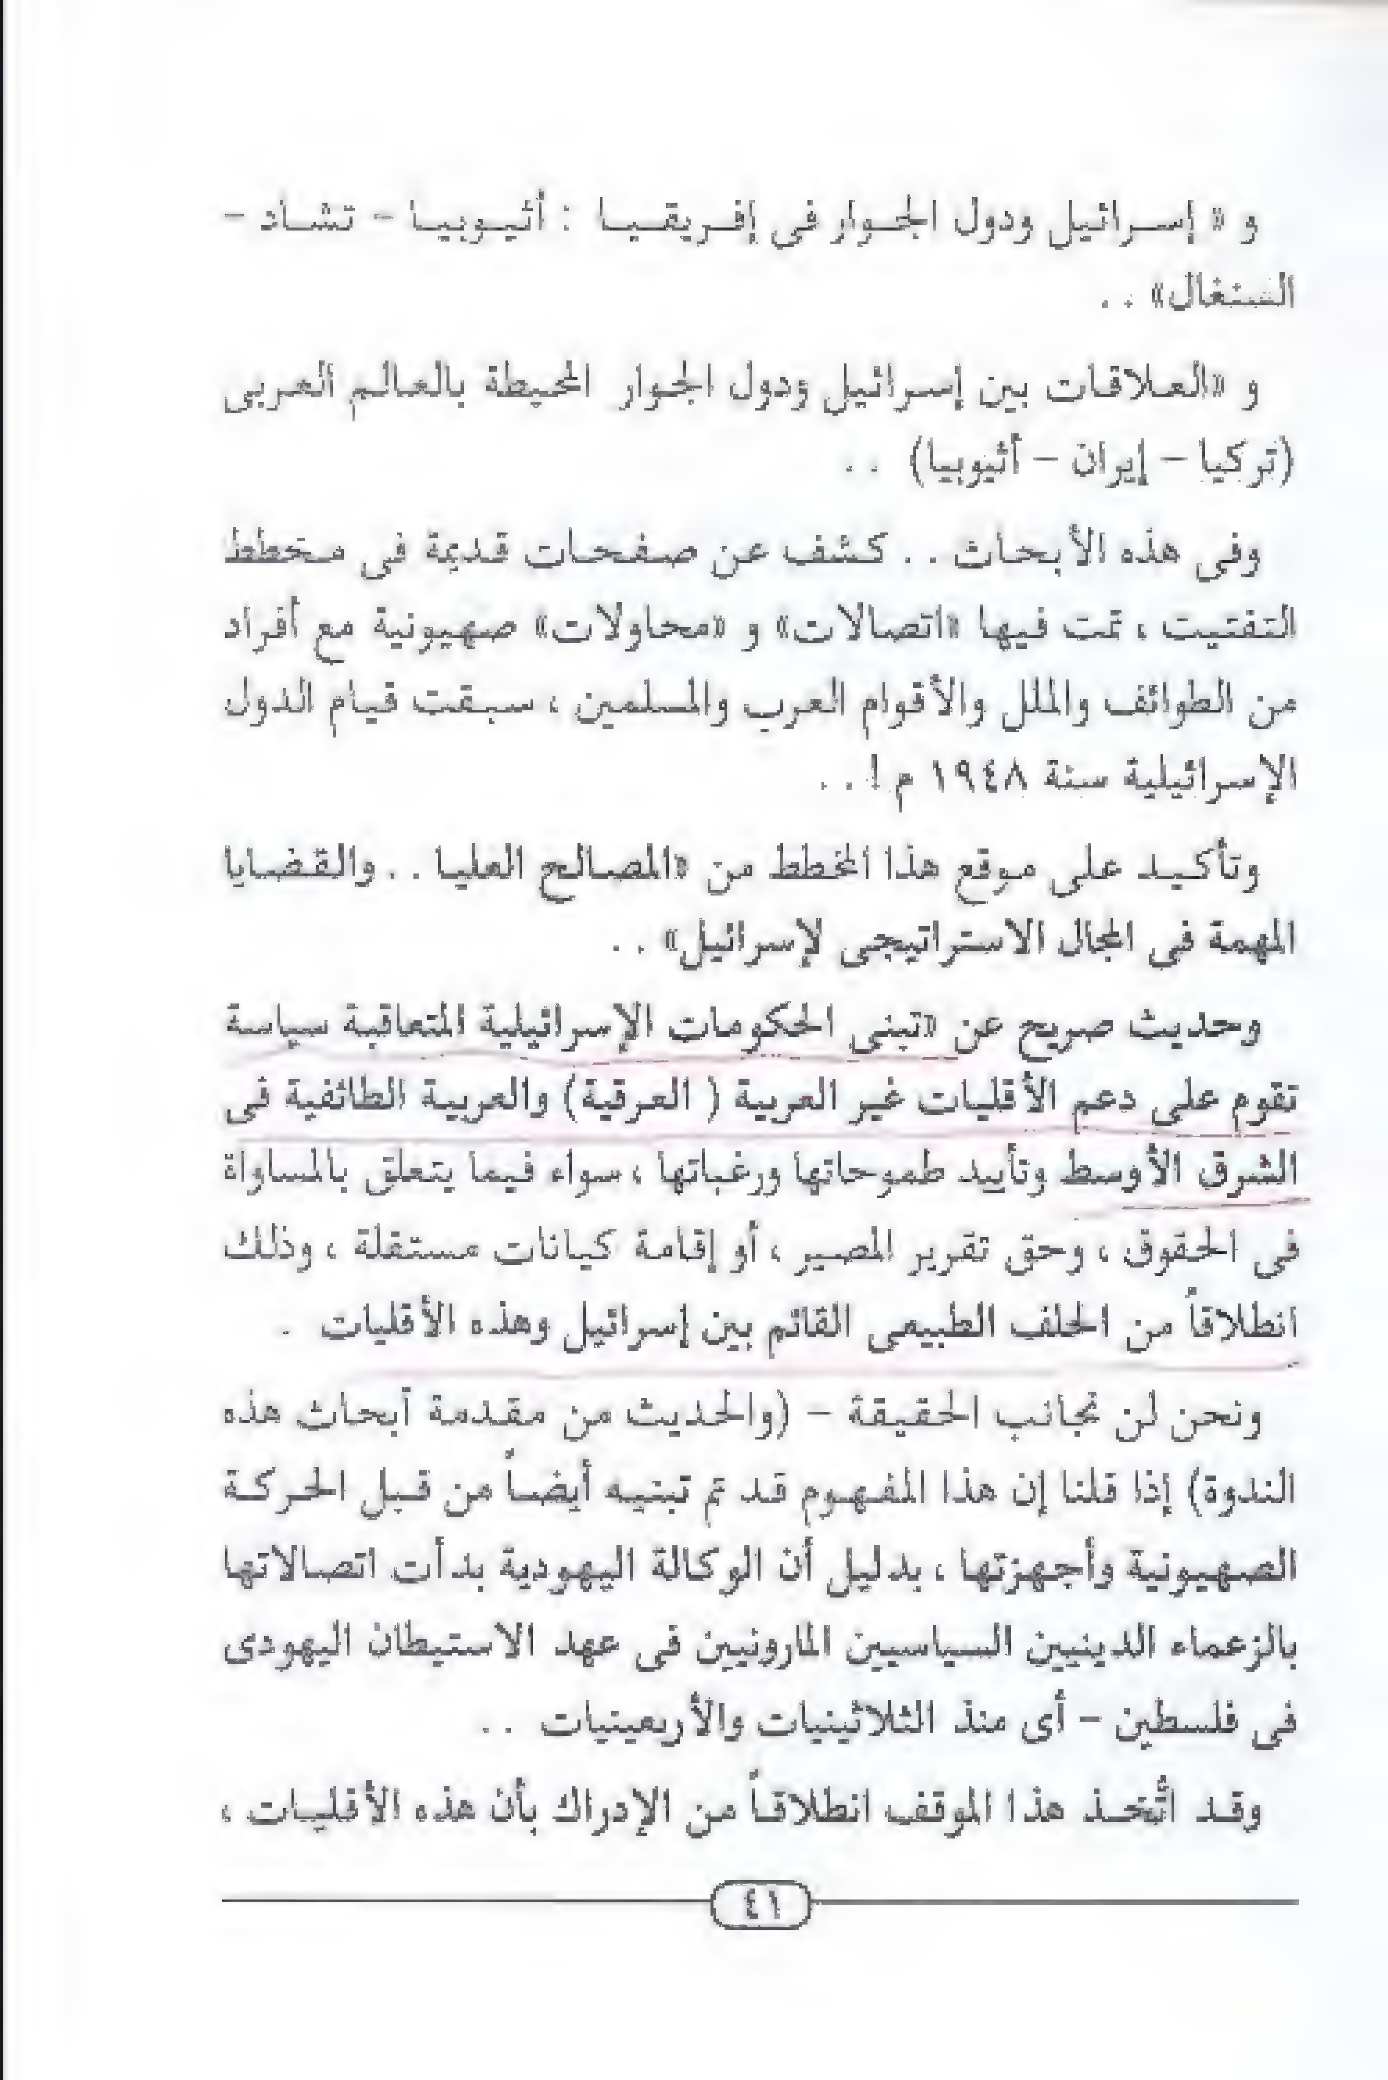 و « إسرائيل ودول الجوار فى إفريقيا : أثيوبيا – تشاد –
السنغال» . .
و «العلاقات بين إسرائيل ودول الجوار المحيطة بالعالم العربى
(تركيا – إيران – أثيوبيا) . .
وفى هذه الأبحاث . . كشف عن صفحات قديمة فى مخطط
التفتيت ، تمت فيها «اتصالات» و «محاولات» صهيونية مع أفراد
من الطوائف والملل والأقوام العرب والمسلمين ، سبقت قيام الدول
الإسرائيلية سنة ١٩٤٨ م ! . .
وتأكيد على موقع هذا المخطط من «المصالح العليا . . والقضايا
المهمة فى المجال الاستراتيجى لإسرائيل» . .
وحديث صريح عن «تبنى الحكومات الإسرائيلية المتعاقبة سياسة
تقوم على دعم الأقليات غير العربية ( العرقية) والعربية الطائفية فى
الشرق الأوسط وتأييد طموحاتها ورغباتها ، سواء فيما يتعلق بالمساواة
فى الحقوق ، وحق تقرير المصير ، أو إقامة كيانات مستقلة ، وذلك
انطلاقاً من الحلف الطبيعى القائم بين إسرائيل وهذه الأقليات .
ونحن لن نجانب الحقيقة – (والحديث من مقدمة أبحاث هذه
الندوة) إذا قلنا إن هذا المفهوم قد تم تبنيه أيضاً من قبل الحركة
الصهيونية وأجهزتها ، بدليل أن الوكالة اليهودية بدأت اتصالاتها
بالزعماء الدينيين السياسيين المارونيين فى عهد الاستيطان اليهودى
فى فلسطين – أى منذ الثلاثينيات والأربعينيات . .
وقد اتُّخذ هذا الموقف انطلاقاً من الإدراك بأن هذه الأقليات ،
٤١